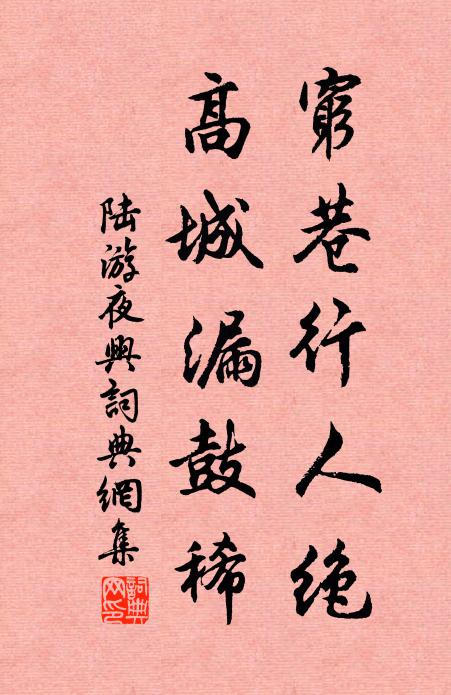 窮巷行人绝
高城漏鼓稀
陆游夜興詞典網集
詞典网印